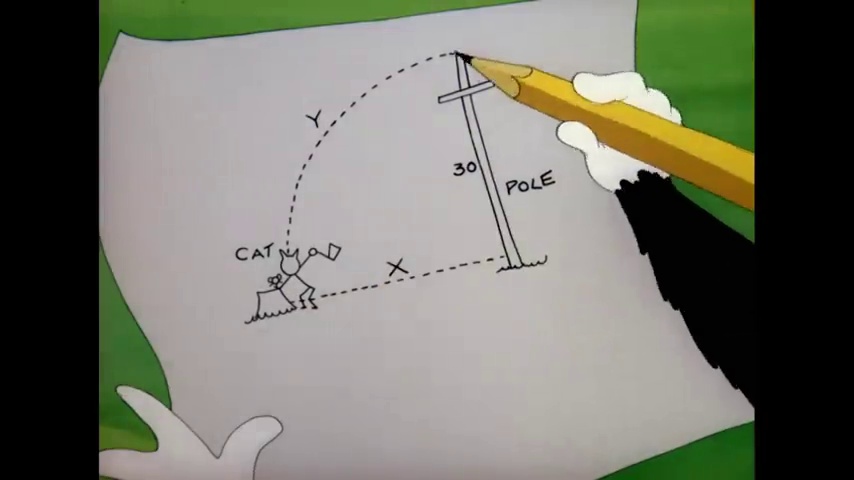 Y
30
POLE
CAT
X